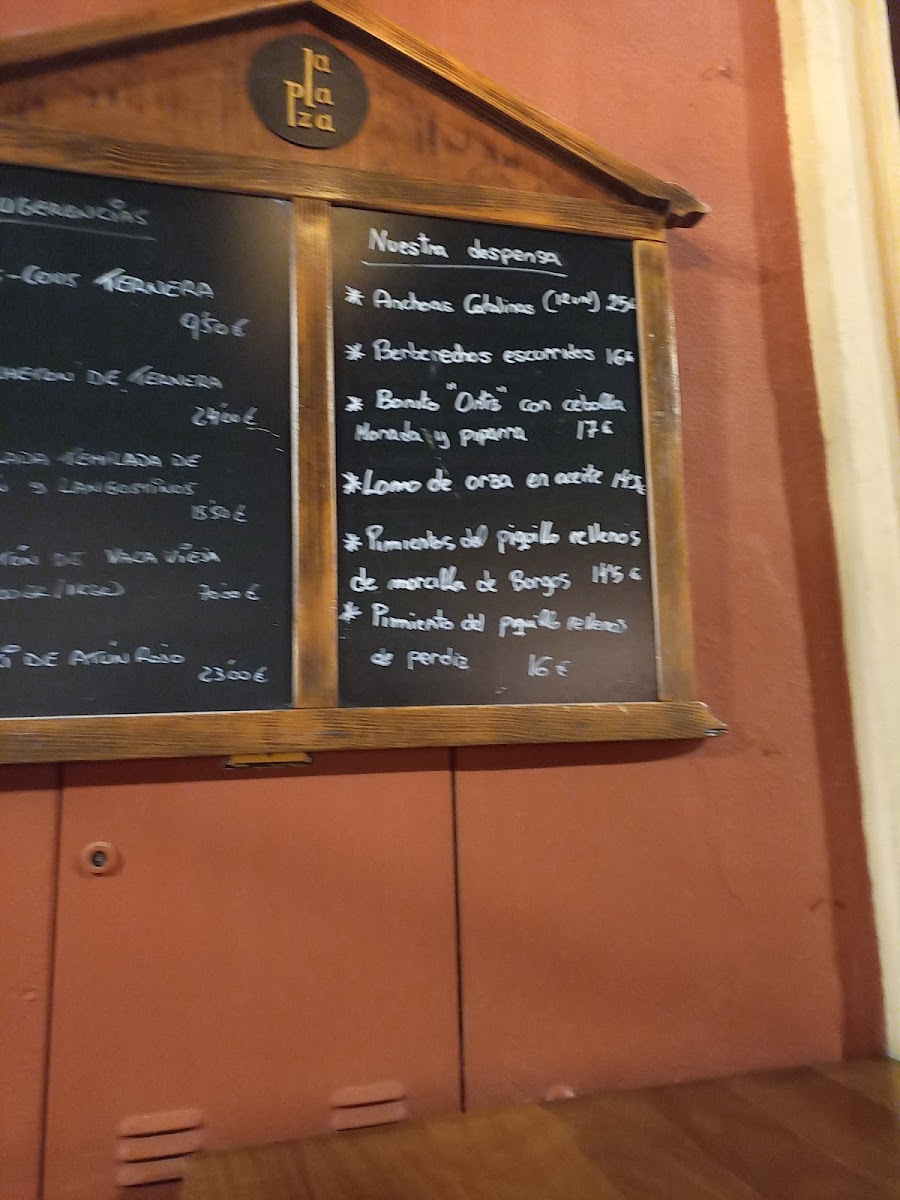 la
pla
za
TERNERA
9'50€
DE TERNERA
24'00€
DE
Y LANGOSTINOS
DE VACA VIEJA
70'00€
DE ATÚN ROJO
23'00€
Nuestra despensa
* Anchoas Catalinas 25€
* Berberechos escurridos 16€
* Bonito "Ortis" con cebolla
Morada y piparra 17€
* Lomo de orza en aceite
* Pimientos del piquillo rellenos
de morcilla de Borgos 14'5€
* Pimiento del piquillo rellenos
de perdiz 16€